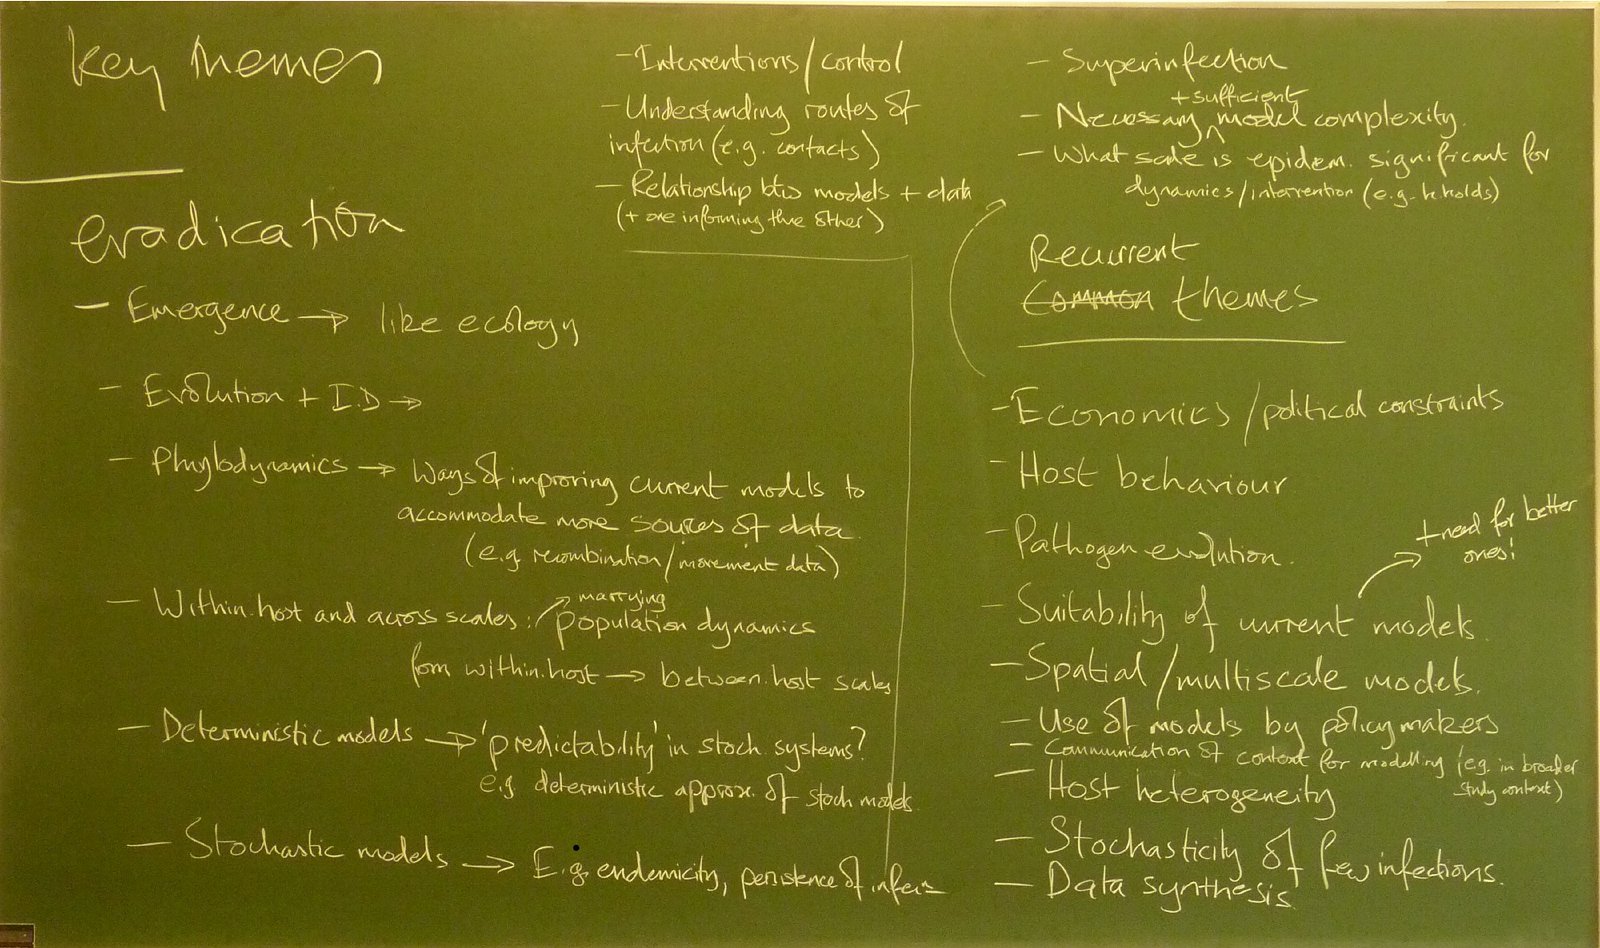 key themes
eradication
- Emergence → like ecology
- Evolution + I.D →
- Phylodynamics → Ways of improving current models to
accommodate more sources of data.
(e.g. recombination/movement data)
- Within.host and across scales: marrying
population dynamics
from within.host → between.host scales
- Deterministic models → 'predictability' in stoch. systems?
e.g deterministic approx. of stoch models.
- Stochastic models → E.g. endemicity, persistence of
- Interventions/control
- Understanding routes of
infection (e.g. contacts)
- Relationship btw models + data
(+ one informing the other)
- Superinfection
+ sufficient
- Necessary ^ model complexity.
- What scale is epidem. significant for
dynamics/intervention (e.g. h.holds)
Recurrent
Common themes
- Economics/political constraints
- Host behaviour
- Pathogen evolution.
- Suitability of current models.
→ + need for better
ones!
- Spatial/multiscale models.
- Use of models by policymakers
- Communication of context for modelling (eg. in broader
study context)
- Host heterogeneity
- Stochasticity of few infections.
- Data synthesis